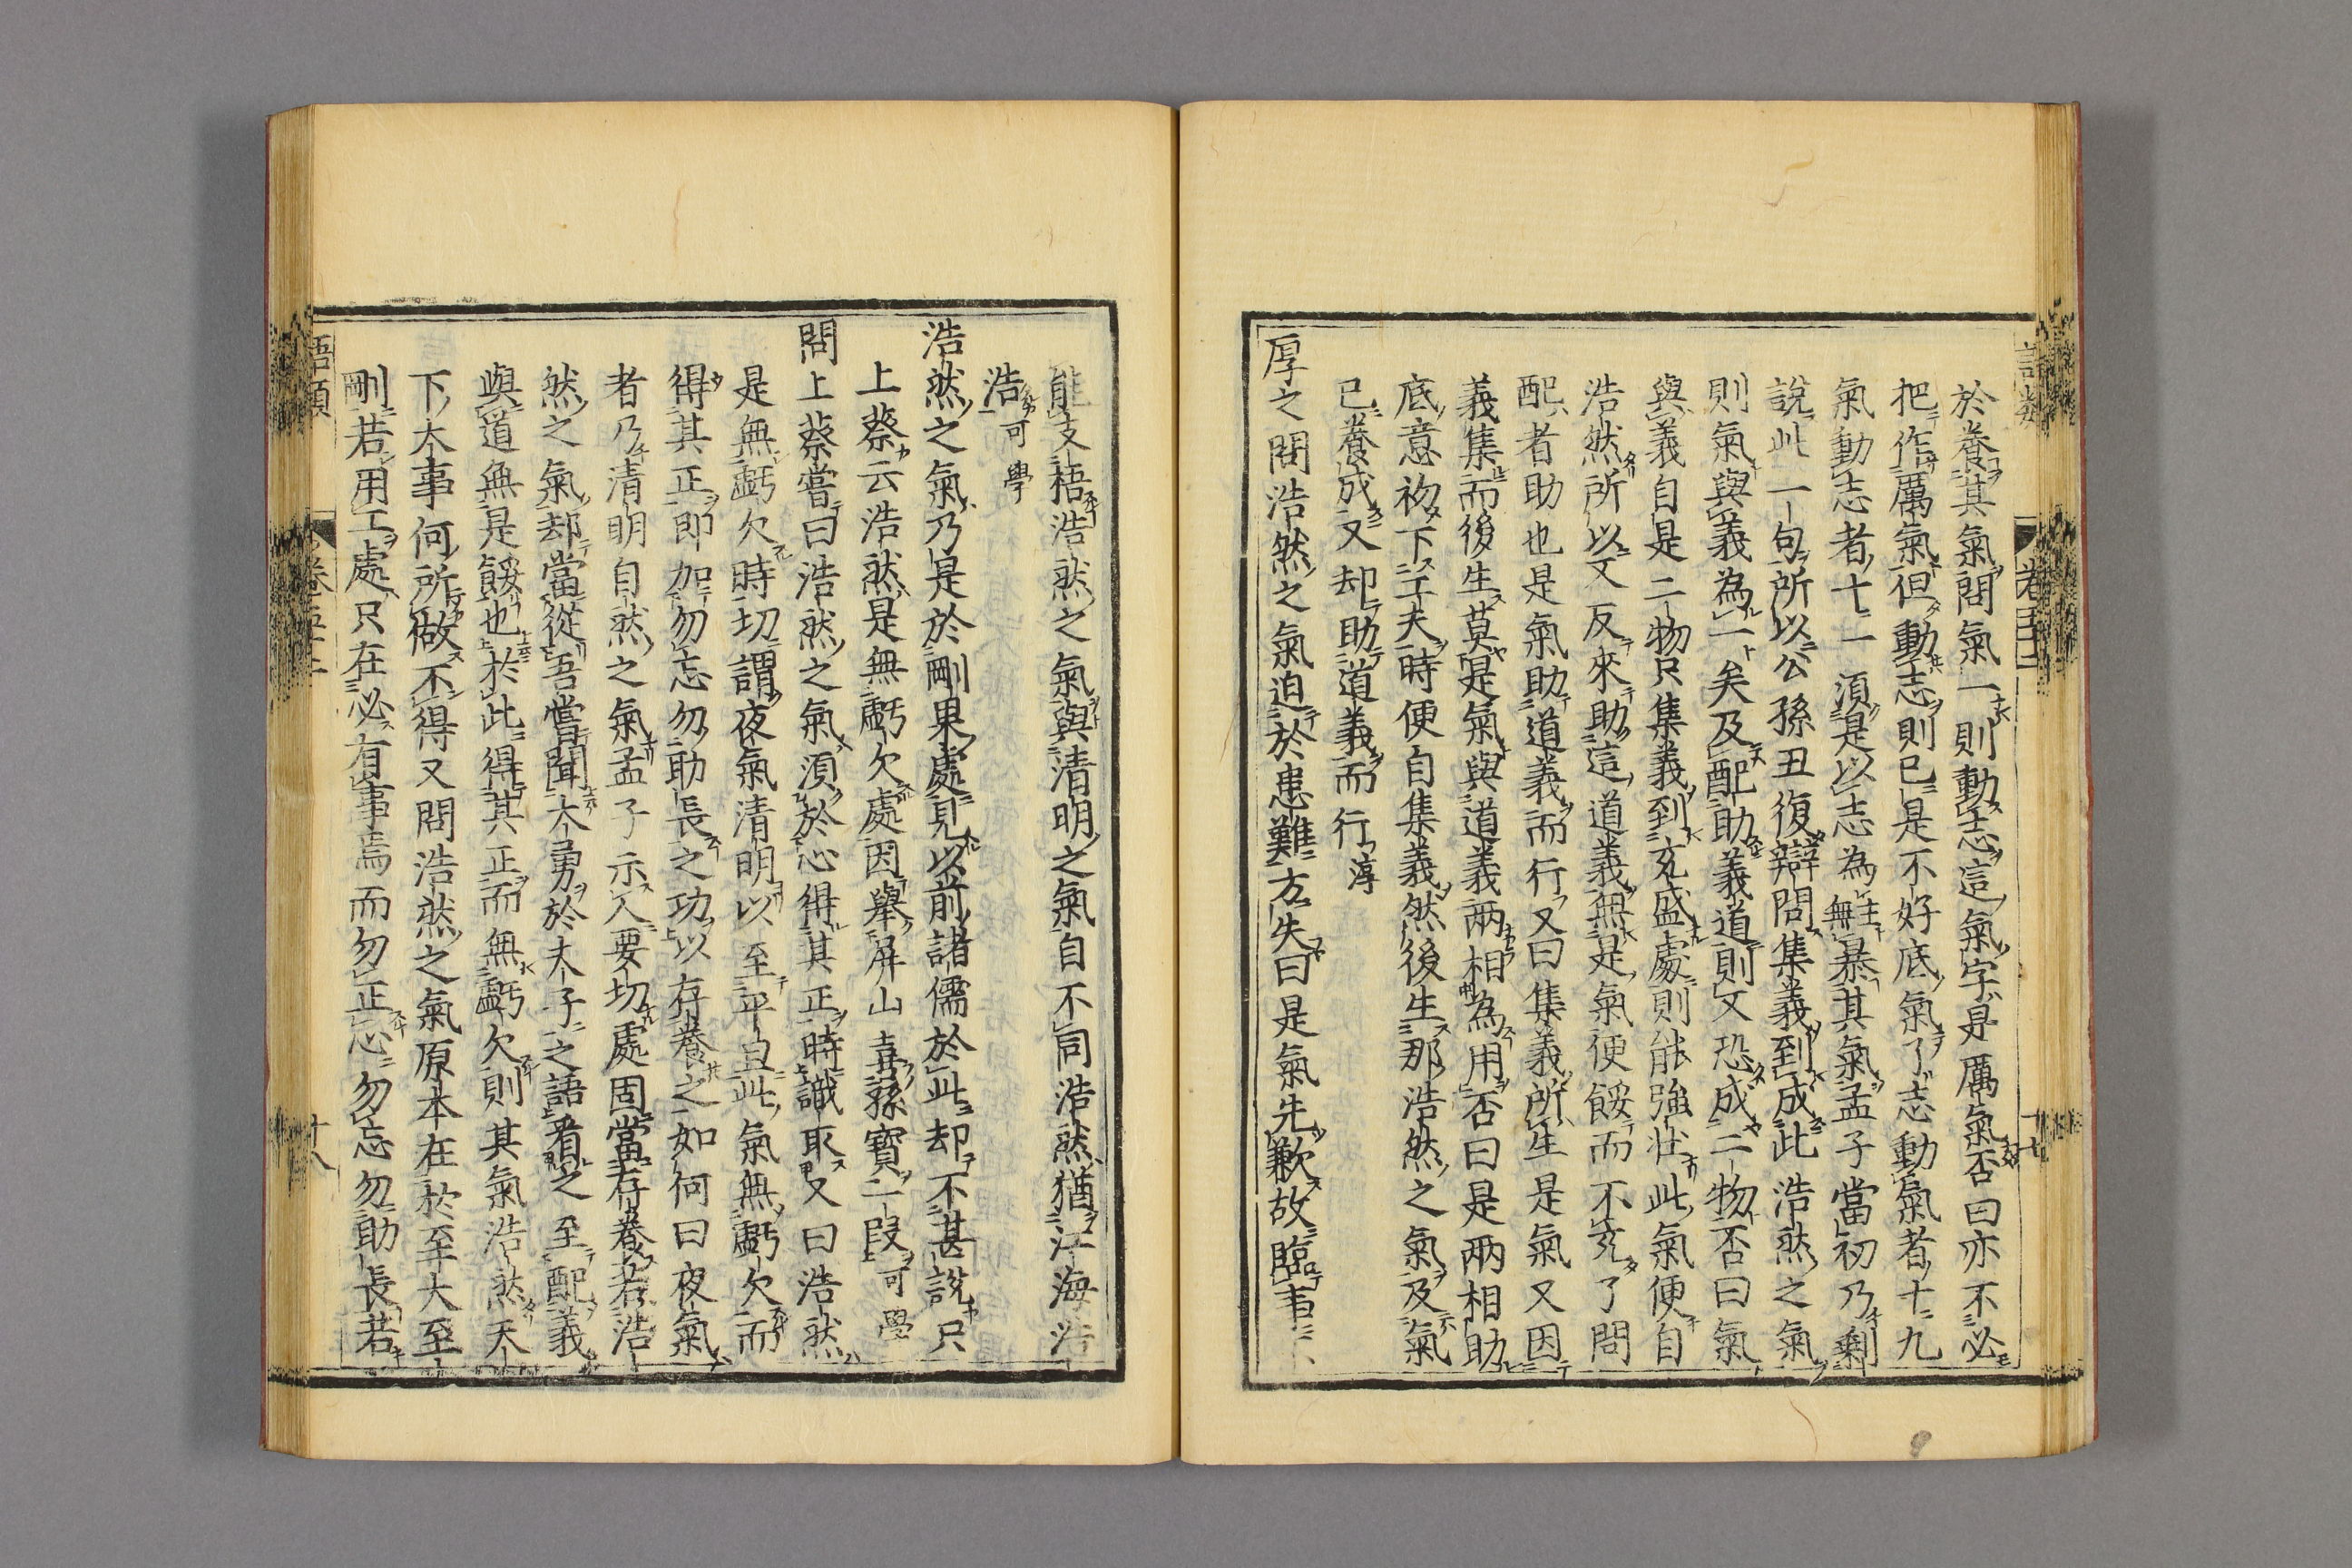 於養其氣問氣一則動志這氣字是厲氣否曰亦不必
把作厲氣但動志則已是不好底氣了志動氣者十九
氣動志者十一須是以志為主無暴其氣孟子當初乃剰
說此一句所以公孫丑復辯問集義到成此浩然之氣
則氣與義為一矣及配助義道則又恐成二物否曰氣
與義自是二物只集義到充盛處則能強壯此氣便自
浩然所以又反來助這道義無是氣便餒而不充了問
配者助也是氣助道義而行又曰集義所生是氣又因
義集而後生莫是氣與道義兩相為用否曰是兩相助
底意初下工夫時便自集義然後生那浩然之氣及氣
已養成又却助道義而行淳
厚之問浩然之氣迫於患難方失曰是氣先歉故臨事
語類
卷五十二
十七
能支梧浩然之氣與清明之氣自不同浩然猶江海浩
浩可學
浩然之氣乃是於剛果處見以前諸儒於此却不甚說只
上蔡云浩然是無虧欠處因舉屏山喜孫寶一段可學
問上蔡嘗曰浩然之氣須於心得其正時識取又曰浩然
是無虧欠時切謂夜氣清明以至平旦此氣無虧欠而
得其正即加勿忘勿助長之功以存養之如何曰夜氣
者乃清明自然之氣孟子示人要切處固當存養若浩
然之氣却當從吾嘗聞大勇於夫子之語看之至配義
與道無是餒也於此得其正而無虧欠則其氣浩然天
下大事何所做不得又問浩然之氣原本在於至大至
剛若用工處只在必有事焉而勿正心勿忘勿助長若
語類
卷五十二
十八